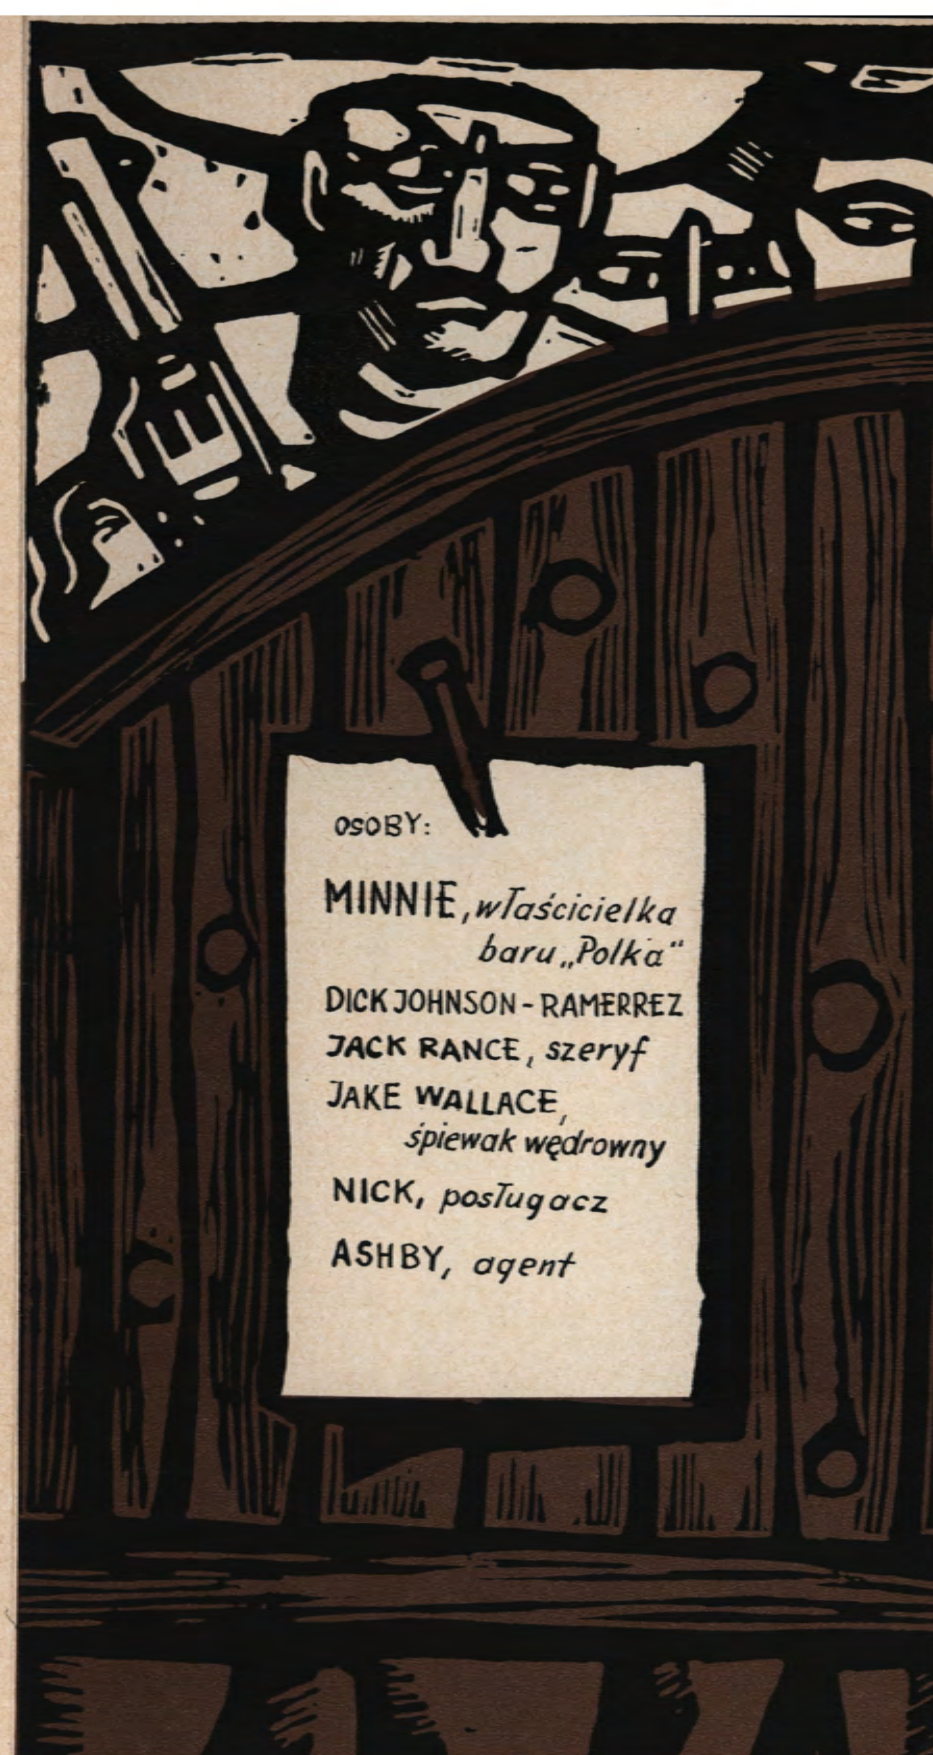 OSOBY:
MINNIE, właścicielka
baru „Polka”
DICK JOHNSON - RAMERREZ
JACK RANCE, szeryf
JAKE WALLACE,
śpiewak wędrowny
NICK, posługacz
ASHBY, agent